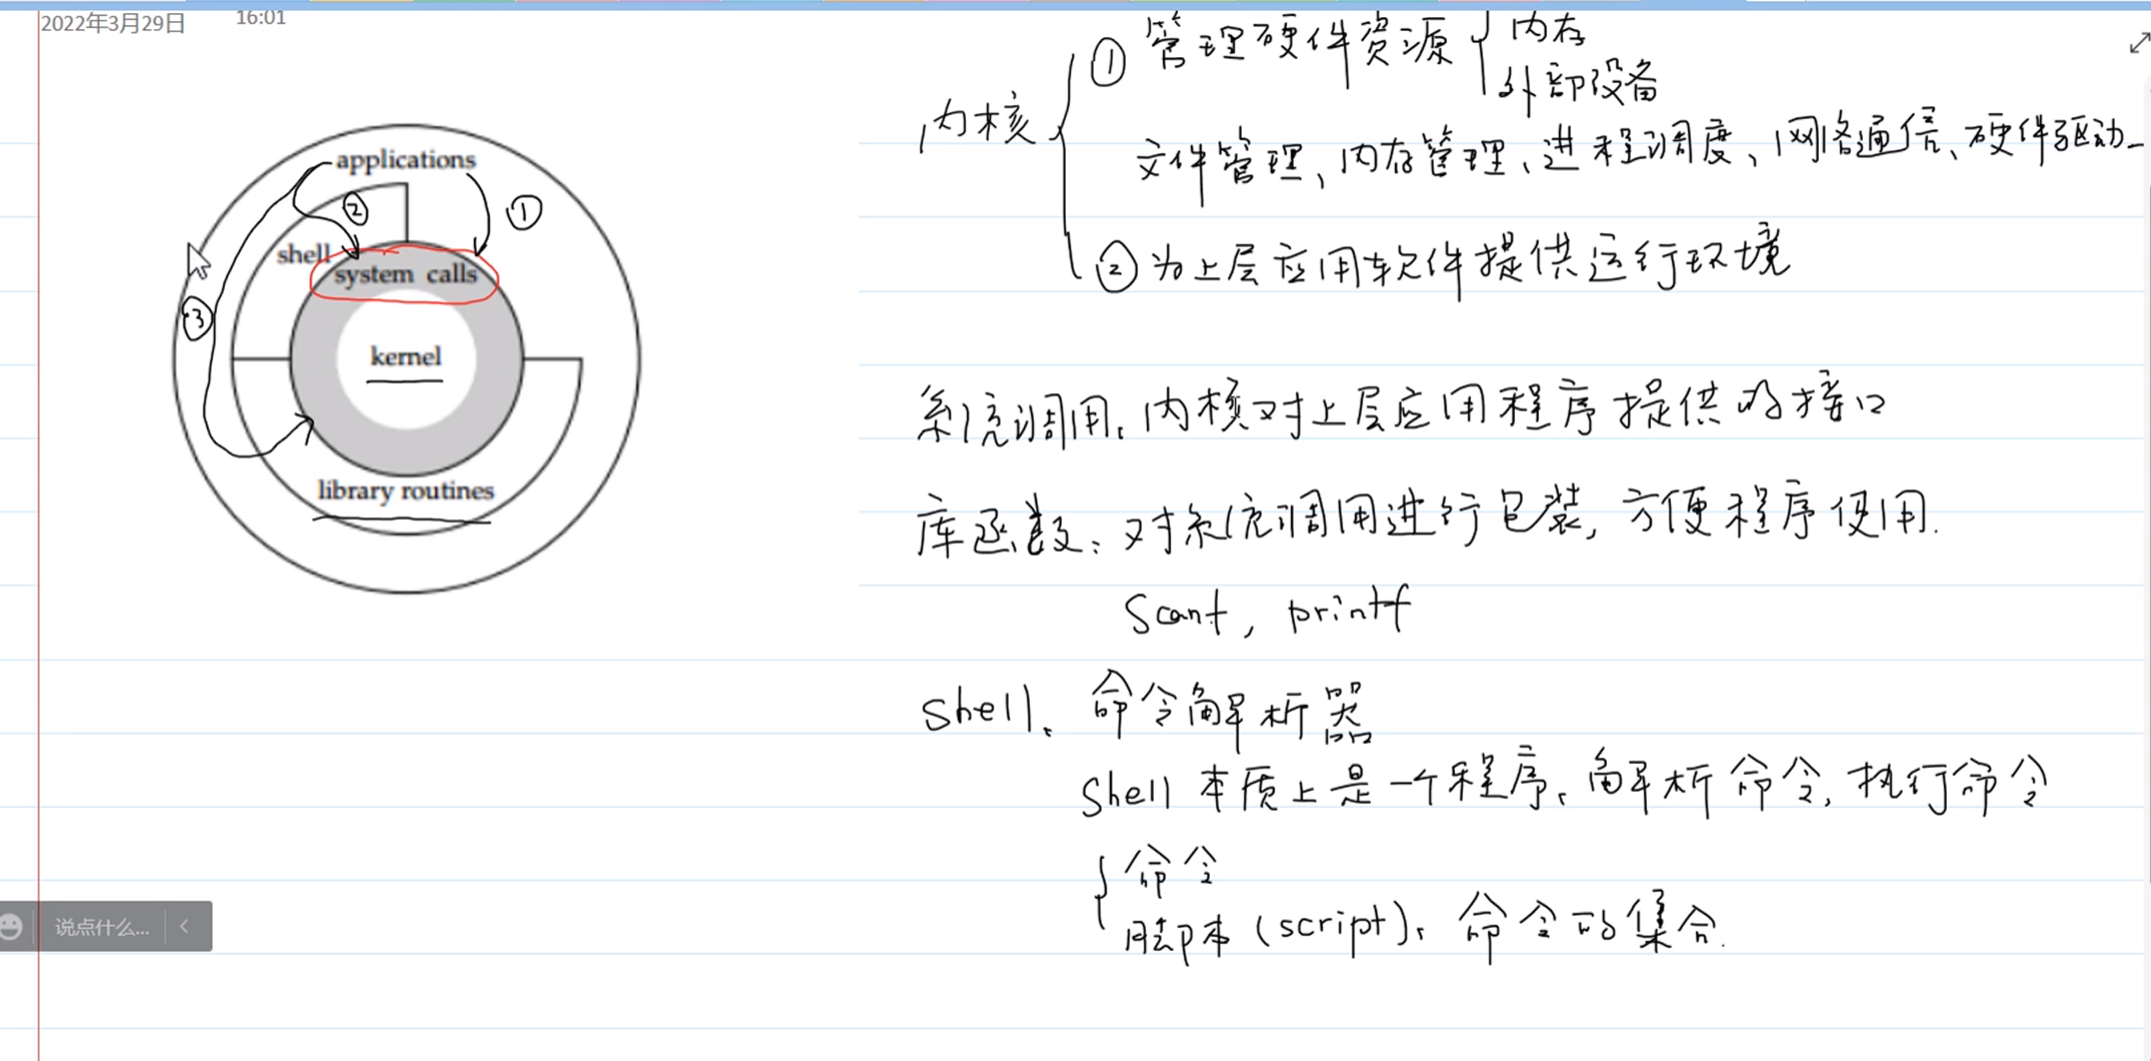 2022年3月29日 16:01
applications
②
①
shell
system calls
③
kernel
library routines
内核
① 管理硬件资源
内存
外部设备
文件管理、内存管理、进程调度、网络通信、硬件驱动
② 为上层应用软件提供运行环境
系统调用: 内核对上层应用程序提供的接口
库函数: 对系统调用进行包装, 方便程序使用.
Scanf, printf
shell: 命令解析器
Shell 本质上是一个程序, 解析命令, 执行命令
命令
脚本 (script): 命令的集合.
说点什么... <